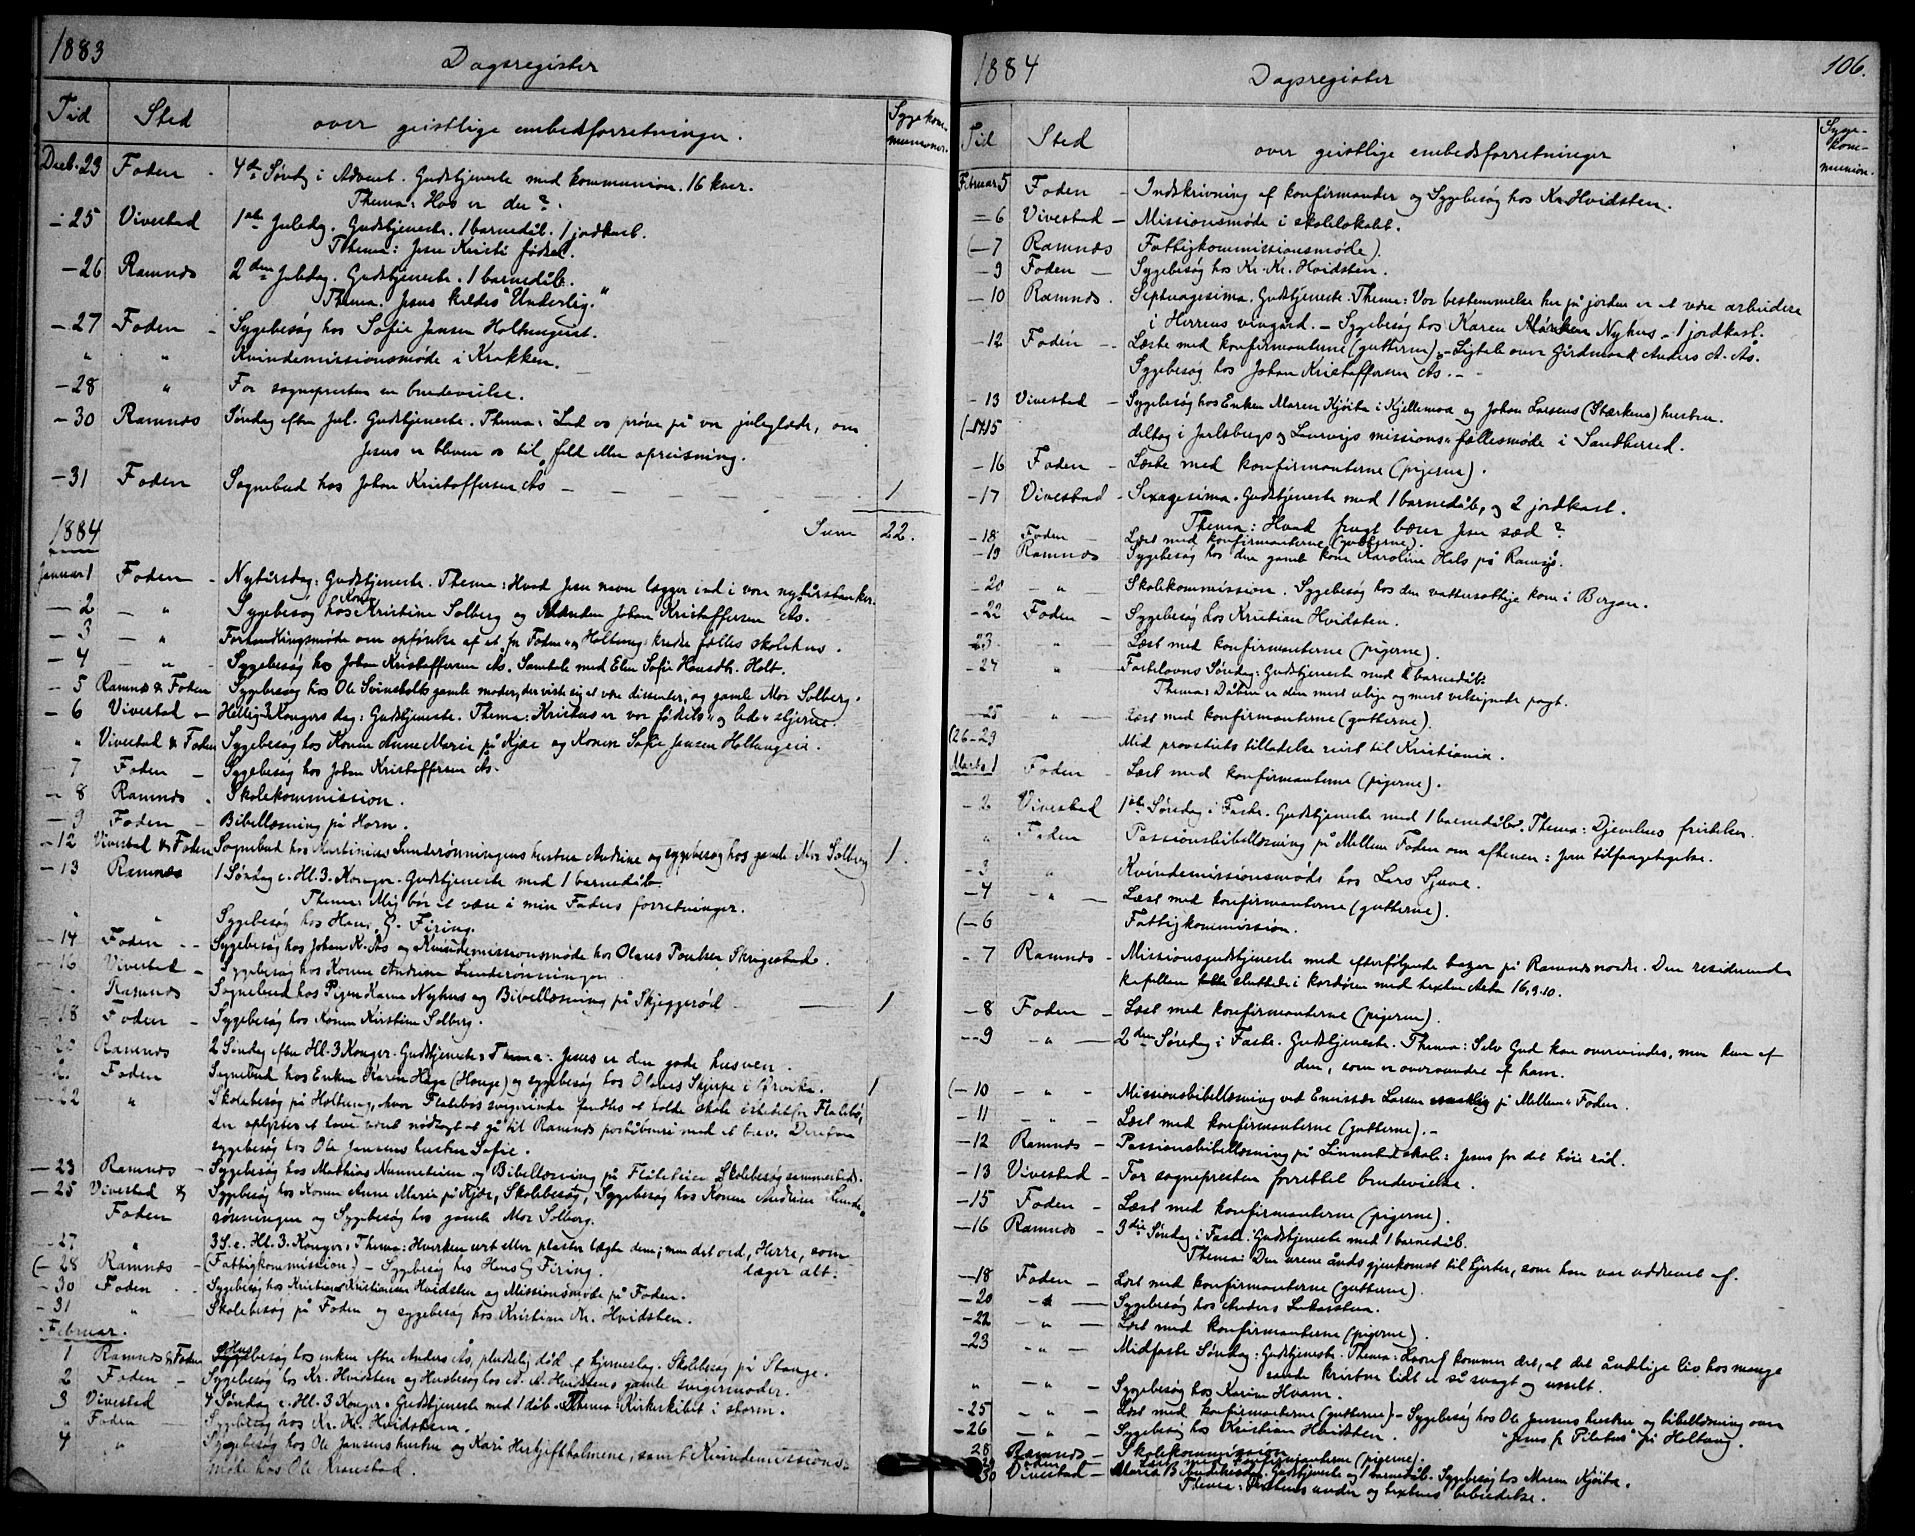 1883
Dagsregister
Tid Sted over geistlige embedsforretninger. Sygekommunioner.
Decb. 23 Foden - 4de Søndg i Advent. Gudstjeneste med kommunion. 16 kver.
Thema: Hvo er du?
- 25 Vivestad 1ste Juledag. Gudstjeneste. 1 barnedåb. 1 jordkast.
Thema: Jesu Kristi fødsel.
- 26 Ramnæs 2den Juledag. Gudstjeneste. 1 barnedåb.
Thema. Jesus kaldes "Underlig."
- 27 Foden - Sygebesøg hos Sofie Jansen Holtungeie.
" " Kvindemissionsmøde i Krakken.
- 28 " For sognepresten en brudevielse.
- 30 Ramnæs Søndag efter Jul. Gudstjeneste. Thema: Lad os prøve på vor juleglæde, om
Jesus er bleven os til fald eller opreisning.
- 31 Foden Sognebud hos Johan Kristoffersen Ås - 1
Sum 22.
1884
Januar 1 Foden - Nytårsdag: Gudstjeneste. Thema: Hvad Jesu navn lægger ind i vore nytårstanker.
- 2 - " Sygebesøg hos Kone Kristine Solberg og Manden Johan Kristoffersen Ås.
- 3 - " Forhandlingsmøde om opførelse af et for Foden og Holtung kredse fælles skolehus.
- 4 - " - Sygebesøg hos Johan Kristoffersen Ås. Samtale med Elen Sofie Hansdtr. Holt.
- 5 Ramnæs & Foden Sygebesøg hos Ole Svinsholts gamle moder, der viste sig at være dissenter, og gamle Mor Solberg.
- 6 Vivestad - Hellig 3 Kongers dag: Gudstjeneste. Thema: Kristus er vor fødsels- og lede-stjerne.
" Vivestad & Foden Sygebesøg hos Konen Anne Marie på Kjær og Konen Sofie Jansen Holtungeie.
- 7 Foden - Sygebesøg hos Johan Kristoffersen Ås.
- 8 Ramnæs. Skolekommission.
- 9 Foden - Bibellæsning på Horn.
- 12 Vivestad & Foden Sognebud hos Martinius Sunderønningens hustru Andrine og sygebesøg hos gamle Mor Solberg 1.
- 13 Ramnæs 1 Søndag e. Hl. 3. Konger. Gudstjeneste med 1 barnedåb.
Thema: Mig bør at være i min Faders forretninger.
" " Sygebesøg hos Hans G. Firing.
- 14 Foden - Sygebesøg hos Johan K. Ås og Kvindemissionsmøde hos Olaus Poulsen Skrigestad.
- 16 Vivestad - Sygebesøg hos Konen Andrine Sunderønningen.
- Ramnæs Sognebud hos Pigen Karen Nyhus og Bibellæsning på Skjeggerød - 1
- 18 Foden - Sygebesøg hos Konen Kirstine Solberg.
- 20 Ramnæs 2 Søndag efter Hl. 3 Konger. Gudstjeneste. Thema: Jesus er den gode husven.
Foden Sognebud hos Enken Karen Haga (Hauge) og sygebesøg hos Olaves Skjerpe i Ørvika. 1
- 22 " Skolebesøg på Holtung, hvor Flatebøs svigerinde fandtes at holde skole istedetfor Flatebø,
der oplystes at have været nødsaget at gå til Ramnæs postaabneri med et brev. Derefter
sygebesøg hos Ole Jansens hustru Sofie.
- 23 Ramnæs - Sygebesøg hos Mathias Nunneteien og Bibellæsning på Flåteteien. Skolebesøg sammesteds.
- 25 Vivestad & Sygebesøg hos Konen Anne Marie på Kjær, Skolebesøg, Sygebesøg hos Konen Andrine Sunde-
Foden rønningen og Sygebesøg hos gamle Mor Solberg.
- 27 " 3 S. e. Hl. 3. Konger. Thema: Hverken urt eller plaster lægte dem; men det ord, Herre, som
læger alt.
(- 28 Ramnæs - (Fattigkommission) - Sygebesøg hos Hans G Firing.
- 30 Foden - Sygebesøg hos Kristian Kristiansen Hvidsten og Missionsmøde på Foden.
- 31 " Skolebesøg på Foden og sygebesøg hos Kristian Kr. Hvidsten.
Februar.
1 Ramnæs & Foden Husbesøg hos enken efter Anders Ås, pludselig død af hjerneslag. Skolebesøg på Stange.
2 Foden - Sygebesøg hos Kr. Hvidsten og Husbesøg hos A. A. Hvidstens gamle svigermoder.
3 Vivestad 4 Søndag e. Hl. 3 Konger. Gudstjeneste med 1 dåb. Thema: Kirkeskibet i storm.
" Foden - Sygebesøg hos Kr. Kr. Hvidsten.
4 " Sygebesøg hos Ole Jansens hustru og Kari Hertjeftholmene, samt Kvindemissions-
møde hos Ole Kranstad.
1884
Dagsregister
106.
Tid Sted over geistlige embedsforretninger Sygekommunion.
Februar 5 Foden - Indskrivning af konfirmander og Sygebesøg hos Kr. Hvidsten.
- 6 Vivestad - Missionsmøde i skolelokalet.
(- 7 Ramnæs Fattigkommissionsmøde).
- 9 Foden - Sygebesøg hos Kr. Kr. Hvidsten.
- 10 Ramnæs. Septuagesima. Gudstjeneste. Thema: Vor bestemmelse her på jorden er at være arbeidere
i Herrens vingård. - Sygebesøg hos Karen Nyhus - 1 jordkast.
- 12 Foden - Læste med konfirmanterne (gutterne). - Ligtale over Gårdmand Anders A. Ås.
Sygebesøg hos Johan Kristoffersen Ås. -
- 13 Vivestad - Sygebesøg hos Enken Maren Kjøita i Kjellemoa og Johan Larsens (Stærkens) hustru.
(- 14-15 deltog i Jarlsbergs og Laurvigs missions-fællesmøde i Sandherred.
- 16 Foden - Læste med konfirmanterne (pigerne).
- 17 Vivestad - Sexagesima. Gudstjeneste med 1 barnedåb, og 2 jordkast.
Thema: Hvad frugt bærer Jesu sæd?
- 18 Foden - Læst med konfirmanterne (gutterne).
- 19 Ramnæs Sygebesøg hos den gamle kone Karoline Hals på Ramsjø.
- 20 - " Skolekommission. Sygebesøg hos den vattersottige kone i Bergan.
- 22 Foden - Sygebesøg hos Kristian Hvidsten.
- 23 " - Læst med konfirmanterne (pigerne).
- 24 " Fastelavns Søndag: Gudstjeneste med 2 barnedåb.
Thema: Dåben er den mest ulige og mest velsignede pagt.
- 25 " - Læst med konfirmanterne (gutterne).
(26-29 Med provstiets tilladelse reist til Kristiania.
Marts 1 Foden - Læst med konfirmanterne (pigerne).
- 2 Vivestad 1ste Søndag i Faste. Gudstjeneste med 1 barnedåb. Thema: Djevelens fristelser.
" Foden Passionsbibellæsning på Mellem Foden om aftenen: Jesu tilfangetagelse.
- 3 " Kvindemissionsmøde hos Lars Sjuve.
- 4 " - Læst med konfirmanterne (gutterne).
(- 6 Fattigkommission.
- 7 Ramnæs - Missionsgudstjeneste med efterfølgende bazar på Ramnæs nordre. Den residerende
kapellan sluttede i kordøren med texten Acta 16,9.10.
- 8 Foden - Læst med konfirmanterne (pigerne).
- 9 - " - 2den Søndag i Faste. Gudstjeneste. Thema: Selv Gud kan overvindes, men kun af
den, som er overvundet af ham.
(- 10 - " - Missionsbibellæsning ved Emissær Larsen på Mellem-Foden.
- 11 - " - Læst med konfirmanterne (gutterne). -
- 12 Ramnæs - Passionsbibellæsning på Linnestad skole: Jesus for det høie råd.
- 13 Vivestad - For sognepresten forrettet brudevielse.
- 15 Foden - Læst med konfirmanterne (pigerne).
- 16 Ramnæs - 3die Søndag i Faste. Gudstjeneste med 1 barnedåb.
Thema: Den urene ånds gjenkomst til hjertet, som han var uddrevet af.
- 18 Foden - Læst med konfirmanterne (gutterne).
- 20 - " - Sygebesøg hos Anders Lukasstuen.
- 22 - " - Læst med konfirmanterne (pigerne).
- 23 - " - Midfaste Søndag: Gudstjeneste. Thema: Hvoraf kommer det, at det åndelige liv hos mange
sande kristne lidt er så svagt og usselt.
" - " - Sygebesøg hos Karine Hvam.
- 25 - " - Læst med konfirmanterne (gutterne) - Sygebesøg hos Ole Jansens hustru og bibellæsning over
"Jesus for Pilatus" på Holtung.
- 26 - " - Sygebesøg hos Kristian Hvidsten.
28 Ramnæs - Skolekommission
29 Foden Læst med konfirmanterne (pigerne).
30 Vivestad - Maria Bebudelsesdag. Gudstjeneste og 1 barnedåb. Sygebesøg hos Maren Kjøita.
Thema: under og textens bebreidelse.